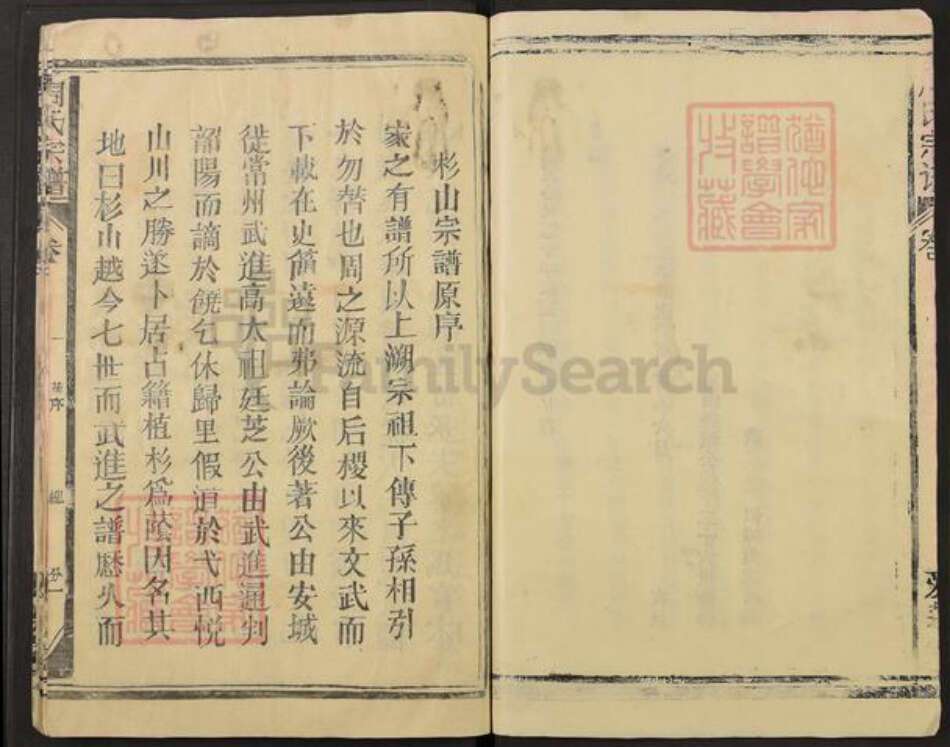 杉山宗譜原序
家之有譜所以上溯宗祖下傳子孫相引
於勿替也周之源流自后稷以來文武而
下載在史篇遠而弗論厥後著公由安城
徙常州武進高太祖廷芝公由武進通判
韶陽而謫於饒乞休歸里假道於弋西悅
山川之勝遂卜居占籍植杉爲蔭因名其
地曰杉山越今七世而武進之譜歷久而
周氏宗譜
卷
一
序
猶他家
譜學會
收藏
FamilySearch